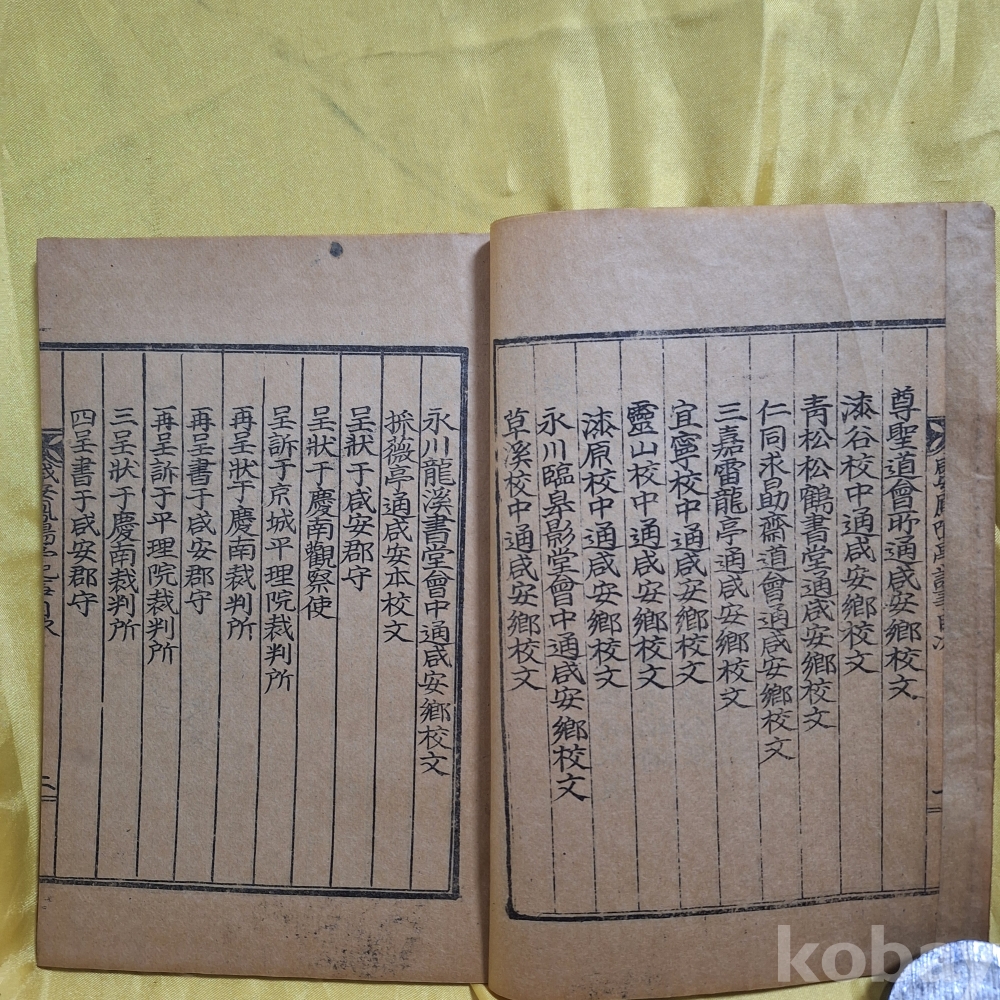 尊聖道會所通咸安鄉校文
漆谷校中通咸安鄉校文
靑松松鶴書堂通咸安鄉校文
仁同求助齋道會通咸安鄉校文
三嘉雷龍亭通咸安鄉校文
宜寧校中通咸安鄉校文
靈山校中通咸安鄉校文
漆原校中通咸安鄉校文
永川臨皐影堂會中通咸安鄉校文
草溪校中通咸安鄉校文
一
永川龍溪書堂會中通咸安鄉校文
採薇亭通咸安本校文
呈狀于咸安郡守
呈狀于慶南觀察使
呈訴于京城平理院裁判所
再呈狀于慶南裁判所
再呈書于咸安郡守
再呈訴于平理院裁判所
三呈狀于慶南裁判所
四呈書于咸安郡守
二
koba